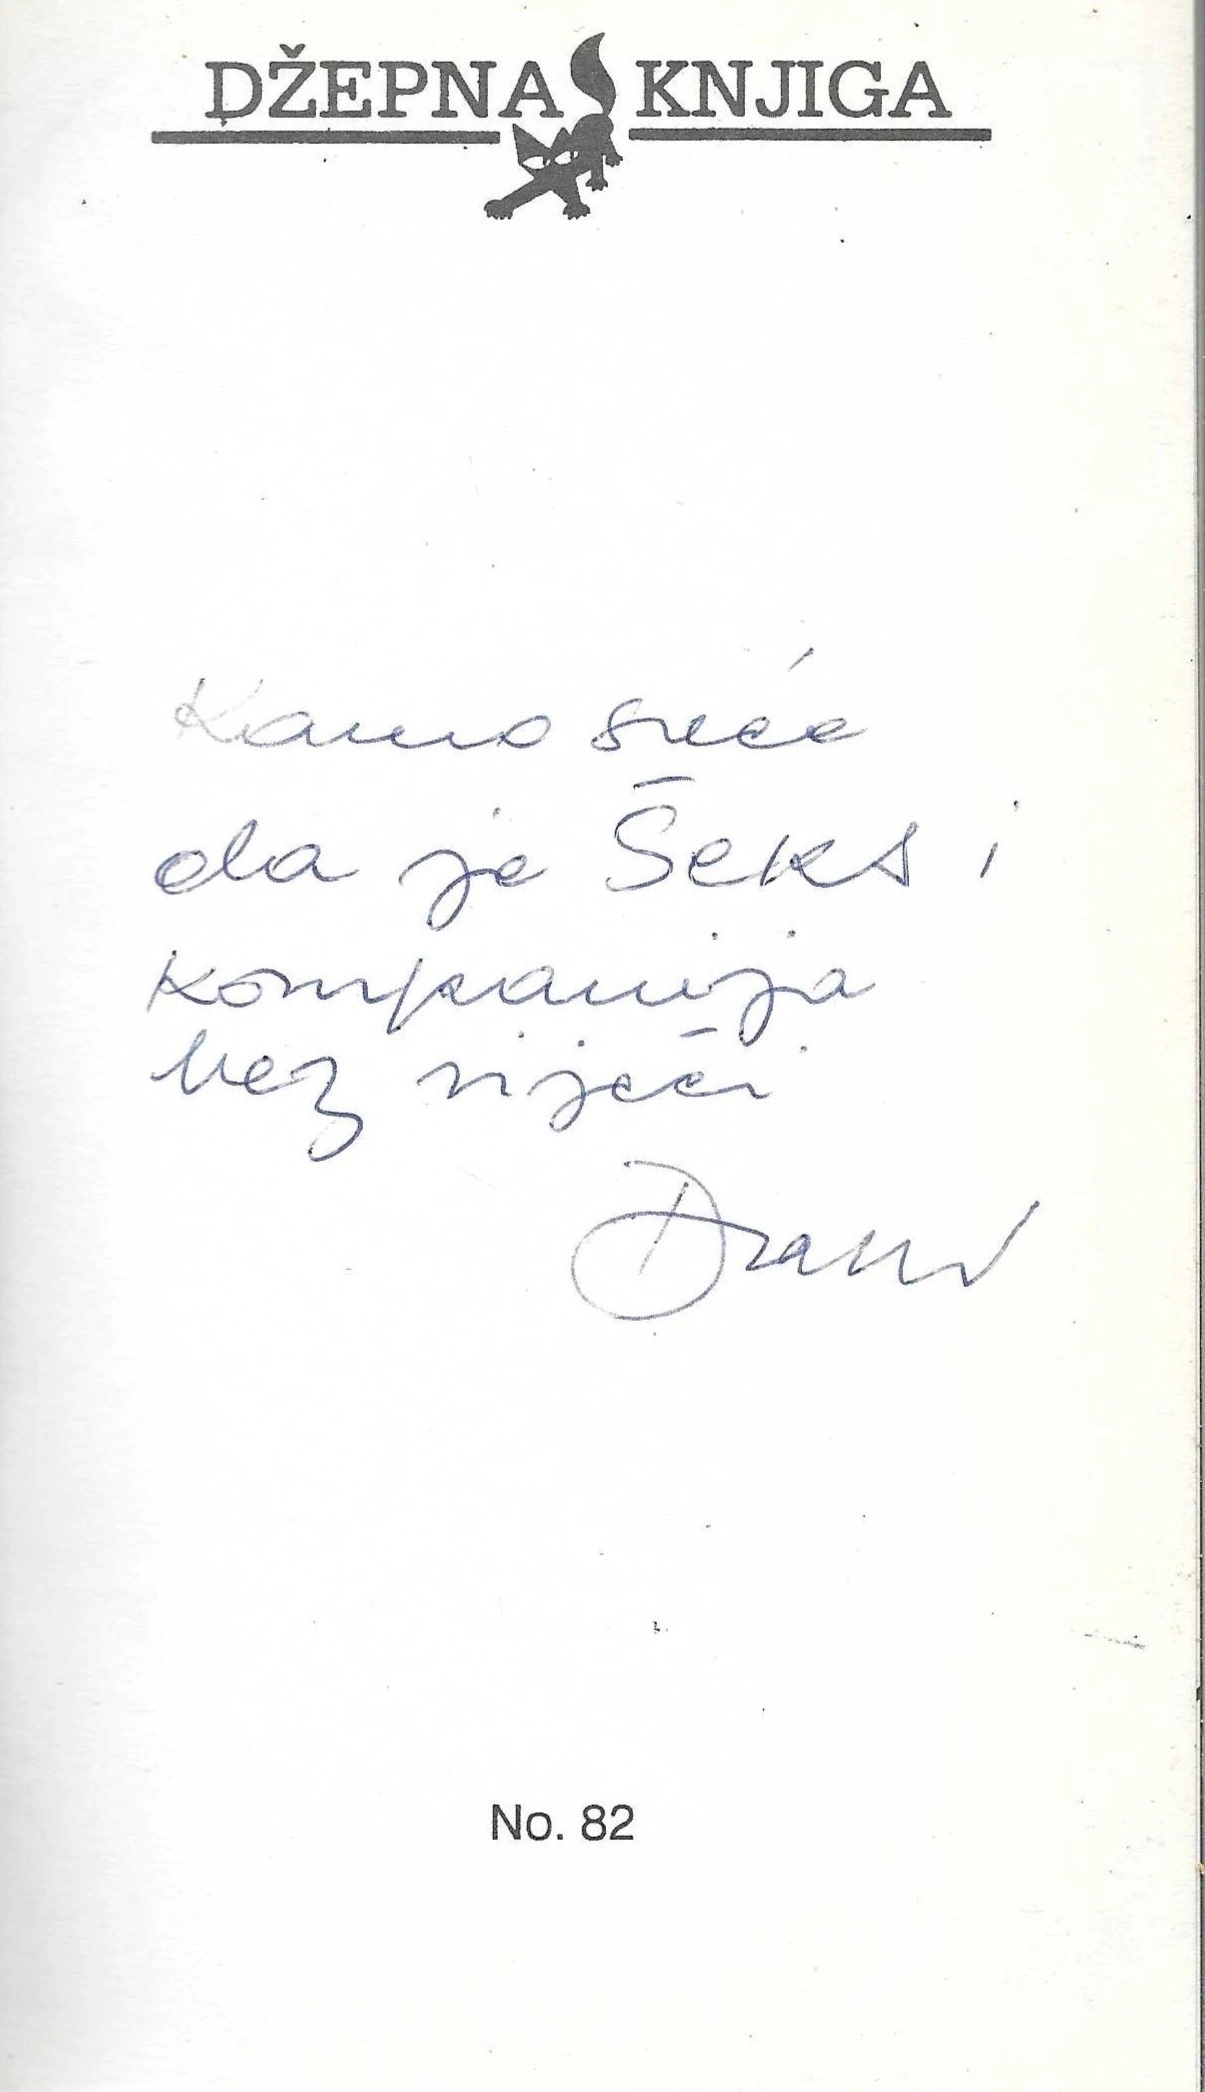 DŽEPNA KNJIGA
Kamo sreće
da je Šeks i
kompanija
bez riječi
No. 82